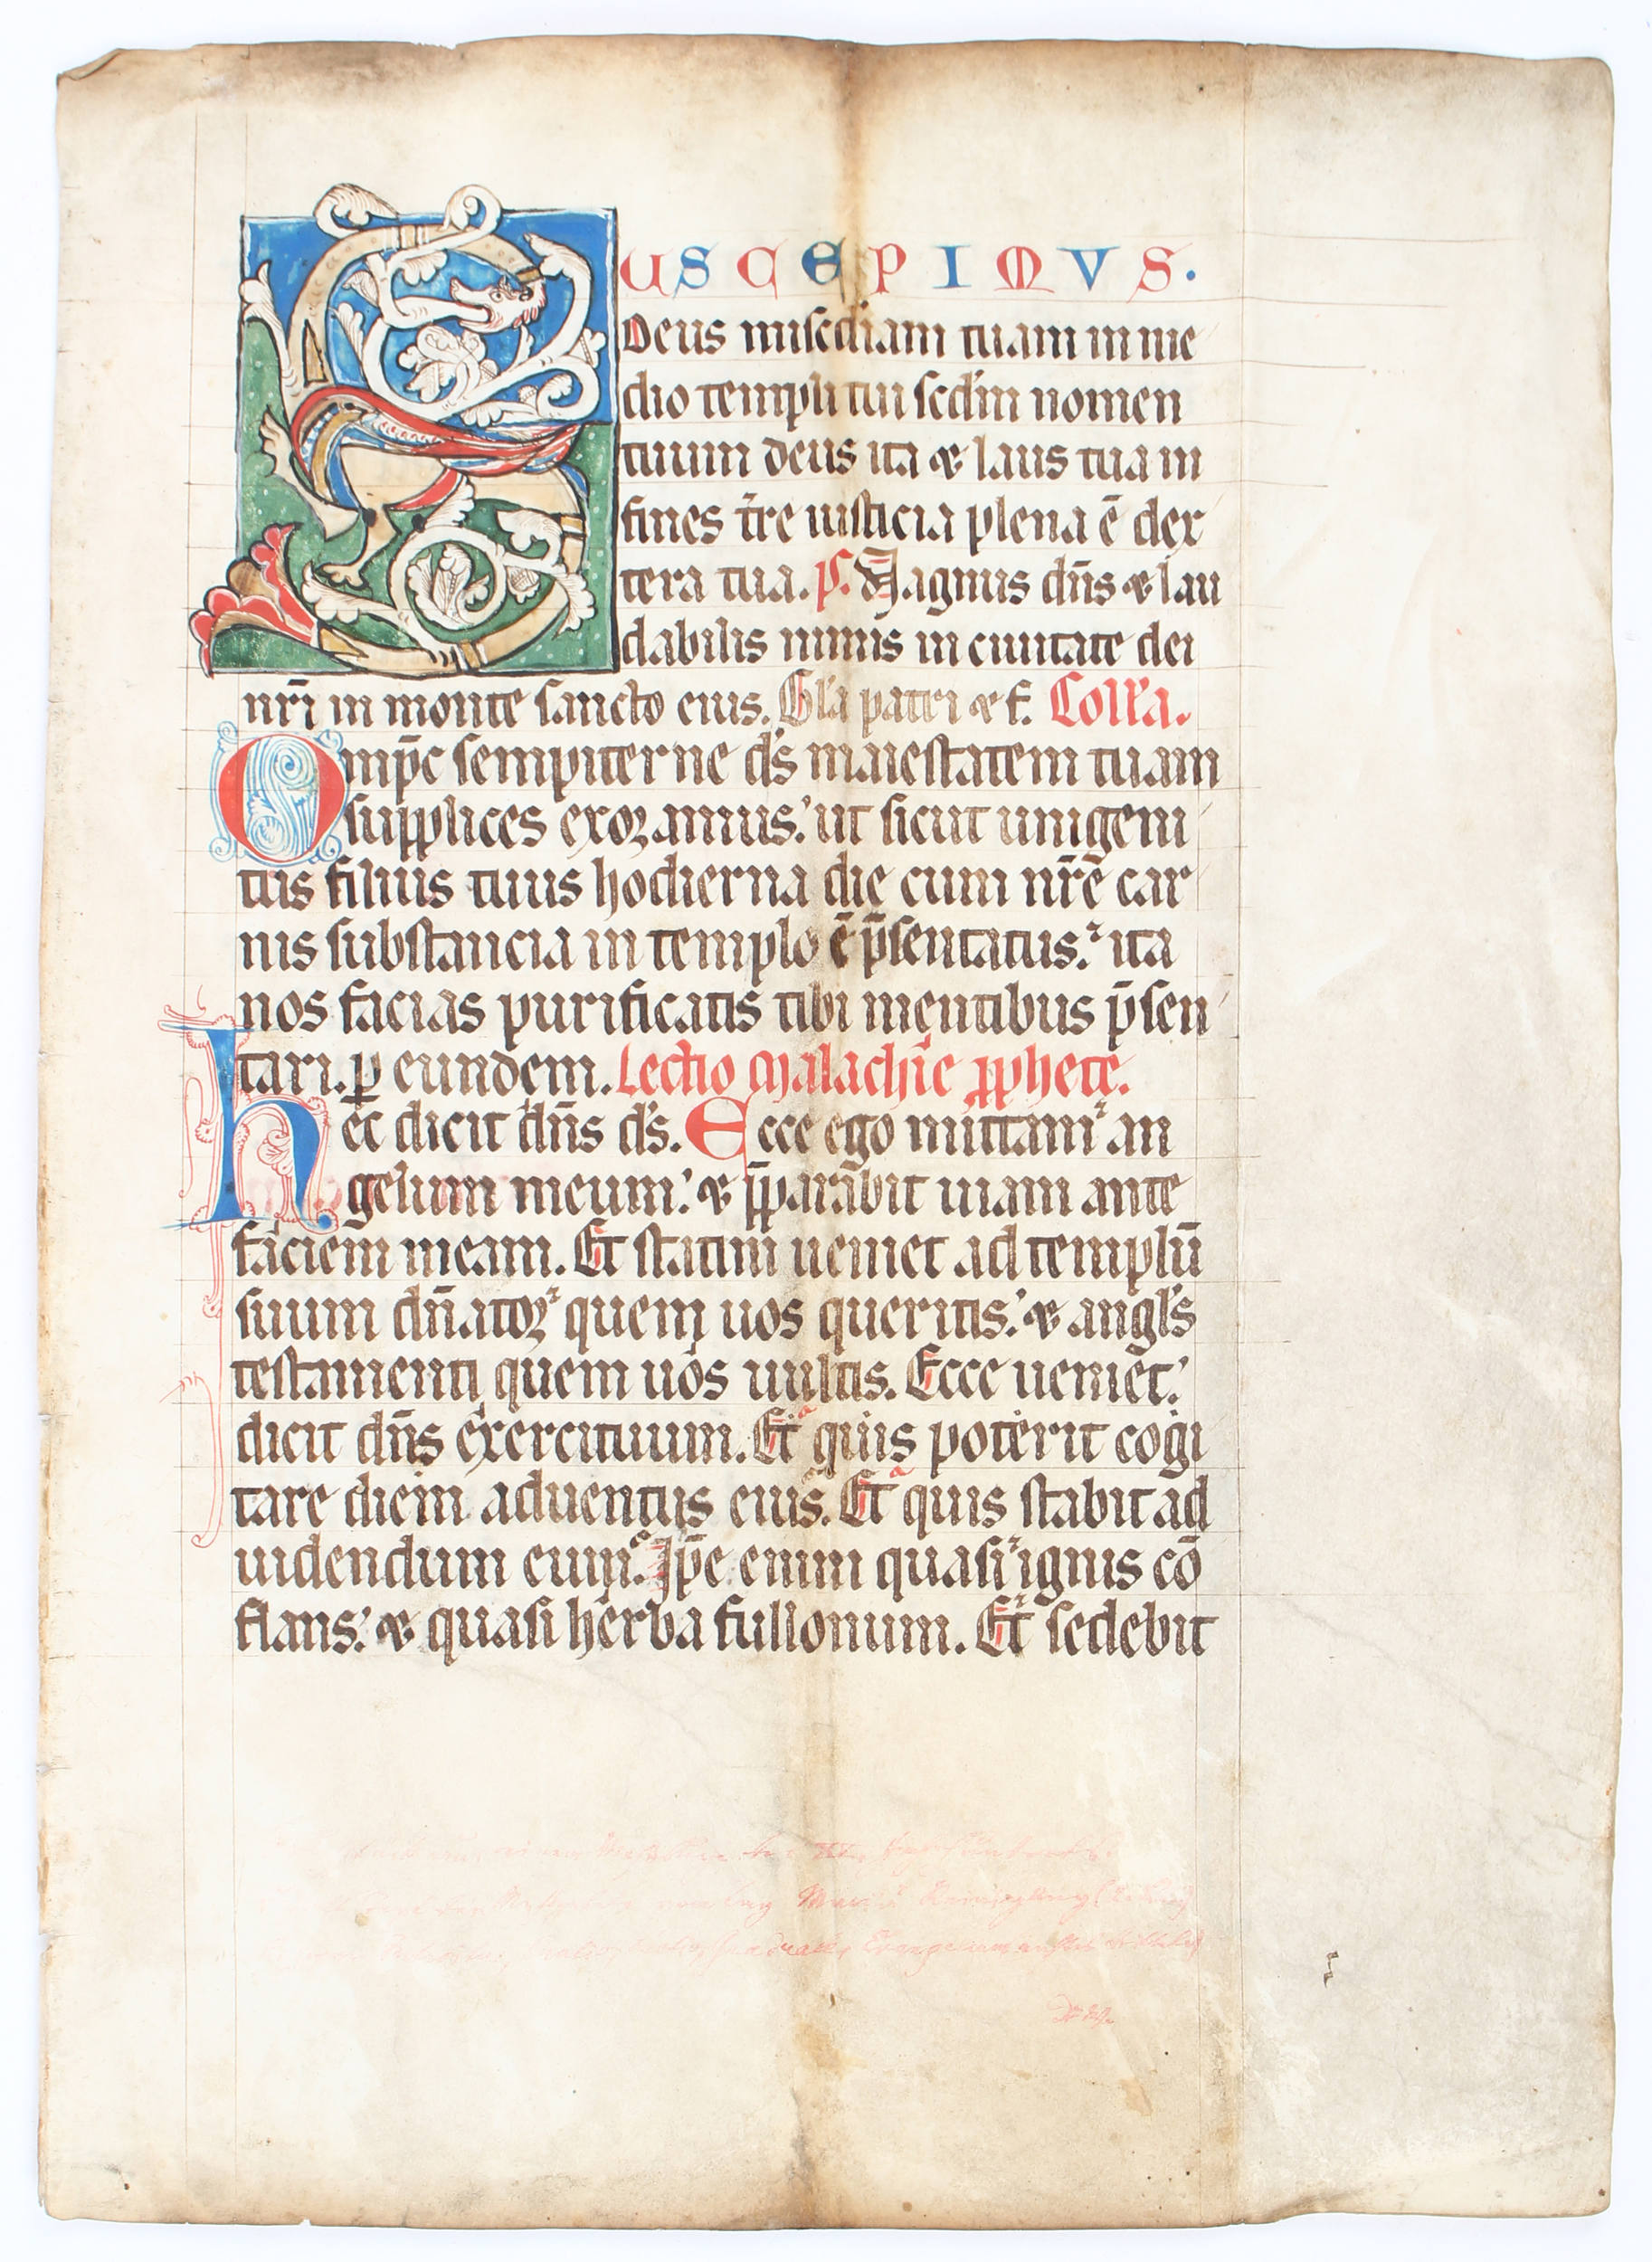 SUSCEPIMVS.
Deus mis̄cdiam tuam in me
dio templi tui scd'm nomen
tuum deus ita & laus tua in
fines t̄re iusticia plena ē dex
tera tua. p̄s. Magnus dn̄s & lau
dabilis nimis in ciuitate dei
nr̄i in monte sancto eius. Gl'a patri & f. Coll'a.
Omp̄c sempiterne d's maiestatem tuam
supplices exoramus.' ut sicut unigeni
tus filius tuus hodierna die cum nr̄ē car
nis substancia in templo ē p̄sentatus.' ita
nos facias purificatis tibi mentibus p̄sen
tari. ꝑ eundem. Lectio Malachie ꝓphete.
hec dicit dn̄s d's. Ecce ego mittam an
gelum meum.' & p̄parabit uiam ante
faciem meam. Et statim ueniet ad templū
suum dn̄ator quem uos queritis.' & angl's
testamenti quem uos uultis. Ecce ueniet.'
dicit dn̄s exercituum. Et quis poterit cogi
tare diem aduentus eius. Et quis stabit ad
uidendum eum. Ip̄e enim quasi ignis cō
flans.' & quasi herba fullonum. Et sedebit